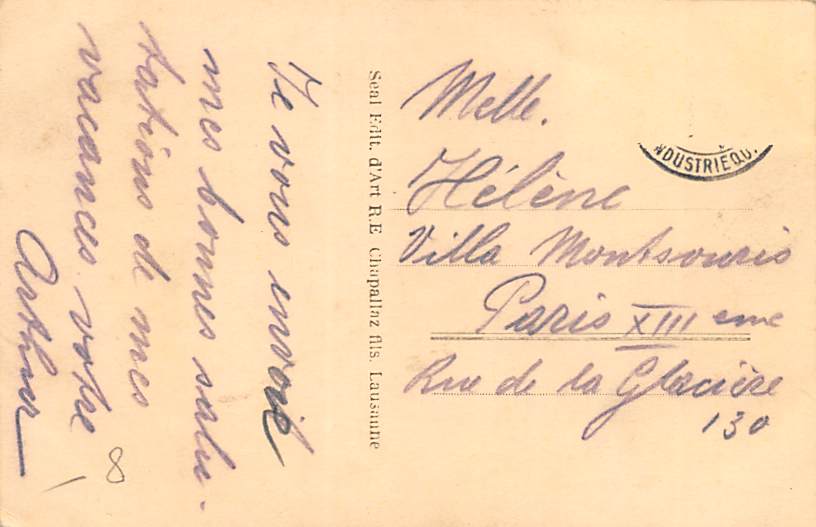 Je vous envoie
mes bonnes salu-
tations de mes
vacances. votre
Arthur
8
Seal Edit. d'Art R.E Chapallaz fils. Lausanne
Melle.
Hélène
Villa Montsouris
Paris XIII eme
Rue de la Glacière
130
NDUSTRIEQU.